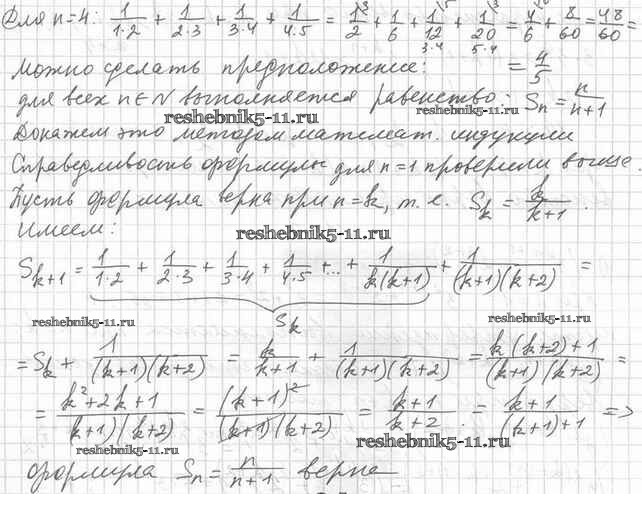 Для n=4: 1/(1·2) + 1/(2·3) + 1/(3·4) + 1/(4·5) = 1/2 + 1/6 + 1/12 + 1/20 = 4/6 + 8/60 = 48/60 =
3·4 5·4
можно сделать предположение: = 4/5
для всех n∈N выполняется равенство: Sn = n/(n+1)
reshebnik5-11.ru reshebnik5-11.ru
Докажем это методом математ. индукции
Справедливость формулы для n=1 проверили выше.
Пусть формула верна при n=k, т.е. Sk = k/(k+1).
Имеем:
reshebnik5-11.ru
Sk+1 = 1/(1·2) + 1/(2·3) + 1/(3·4) + 1/(4·5) +...+ 1/(k(k+1)) + 1/((k+1)(k+2)) =
Sk
reshebnik5-11.ru reshebnik5-11.ru
= Sk + 1/((k+1)(k+2)) = k/(k+1) + 1/((k+1)(k+2)) = (k(k+2)+1)/((k+1)(k+2)) =
= (k²+2k+1)/((k+1)(k+2)) = (k+1)²/((k+1)(k+2)) = (k+1)/(k+2) = (k+1)/((k+1)+1) =>
reshebnik5-11.ru reshebnik5-11.ru
формула Sn = n/(n+1) верна